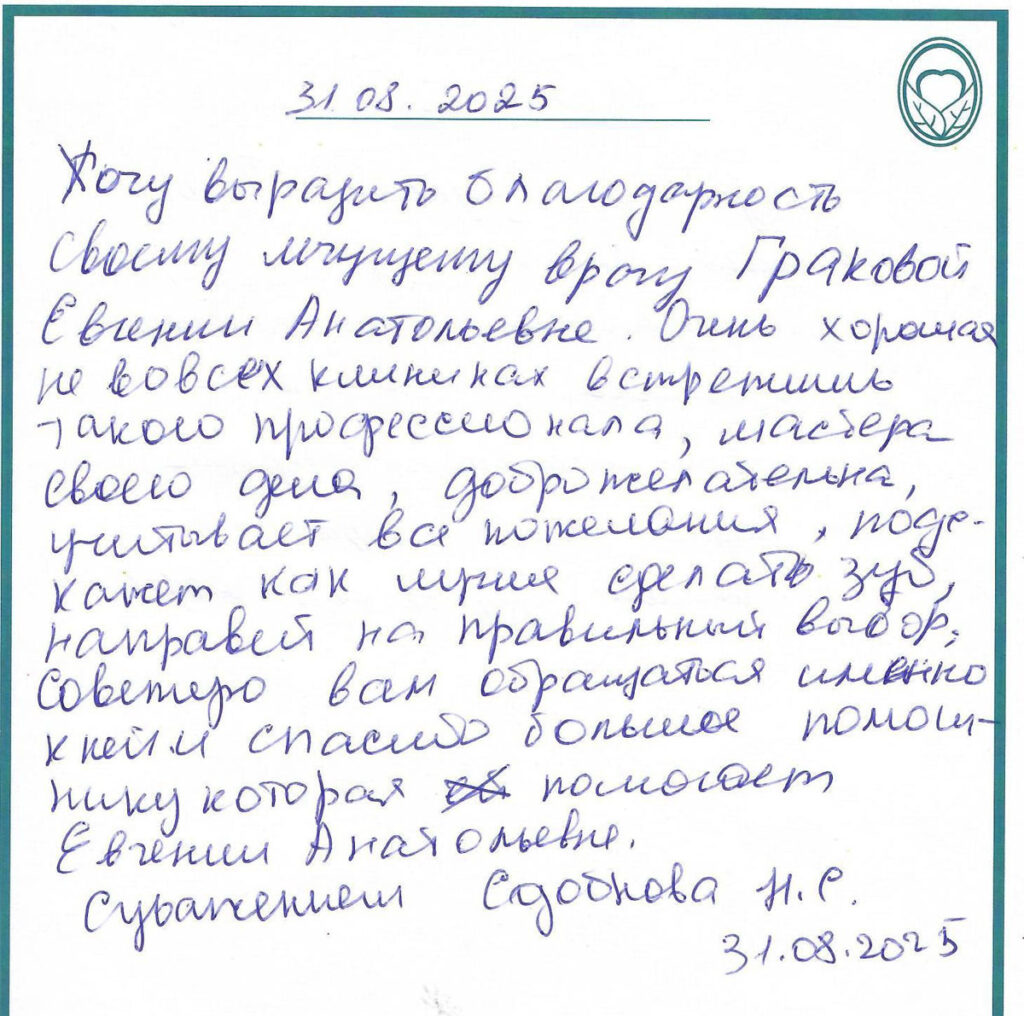 31.08.2025
Хочу выразить благодарность
своему лечущему врачу Граковой
Евгении Анатольевне. Очень хорошая
не вовсех клиниках встретишь
такого профессионала, мастера
своего дела, доброжелательна,
учитывает все пожелания, подс-
кажет как лучше сделать зуб,
направей на правильный выбор,
Советую вам обращаться именно
к ней.и спасибо большое помош-
нику которая помогает
Евгении Анатольевне.
Суважением Сдобнова Н.С.
31.08.2025